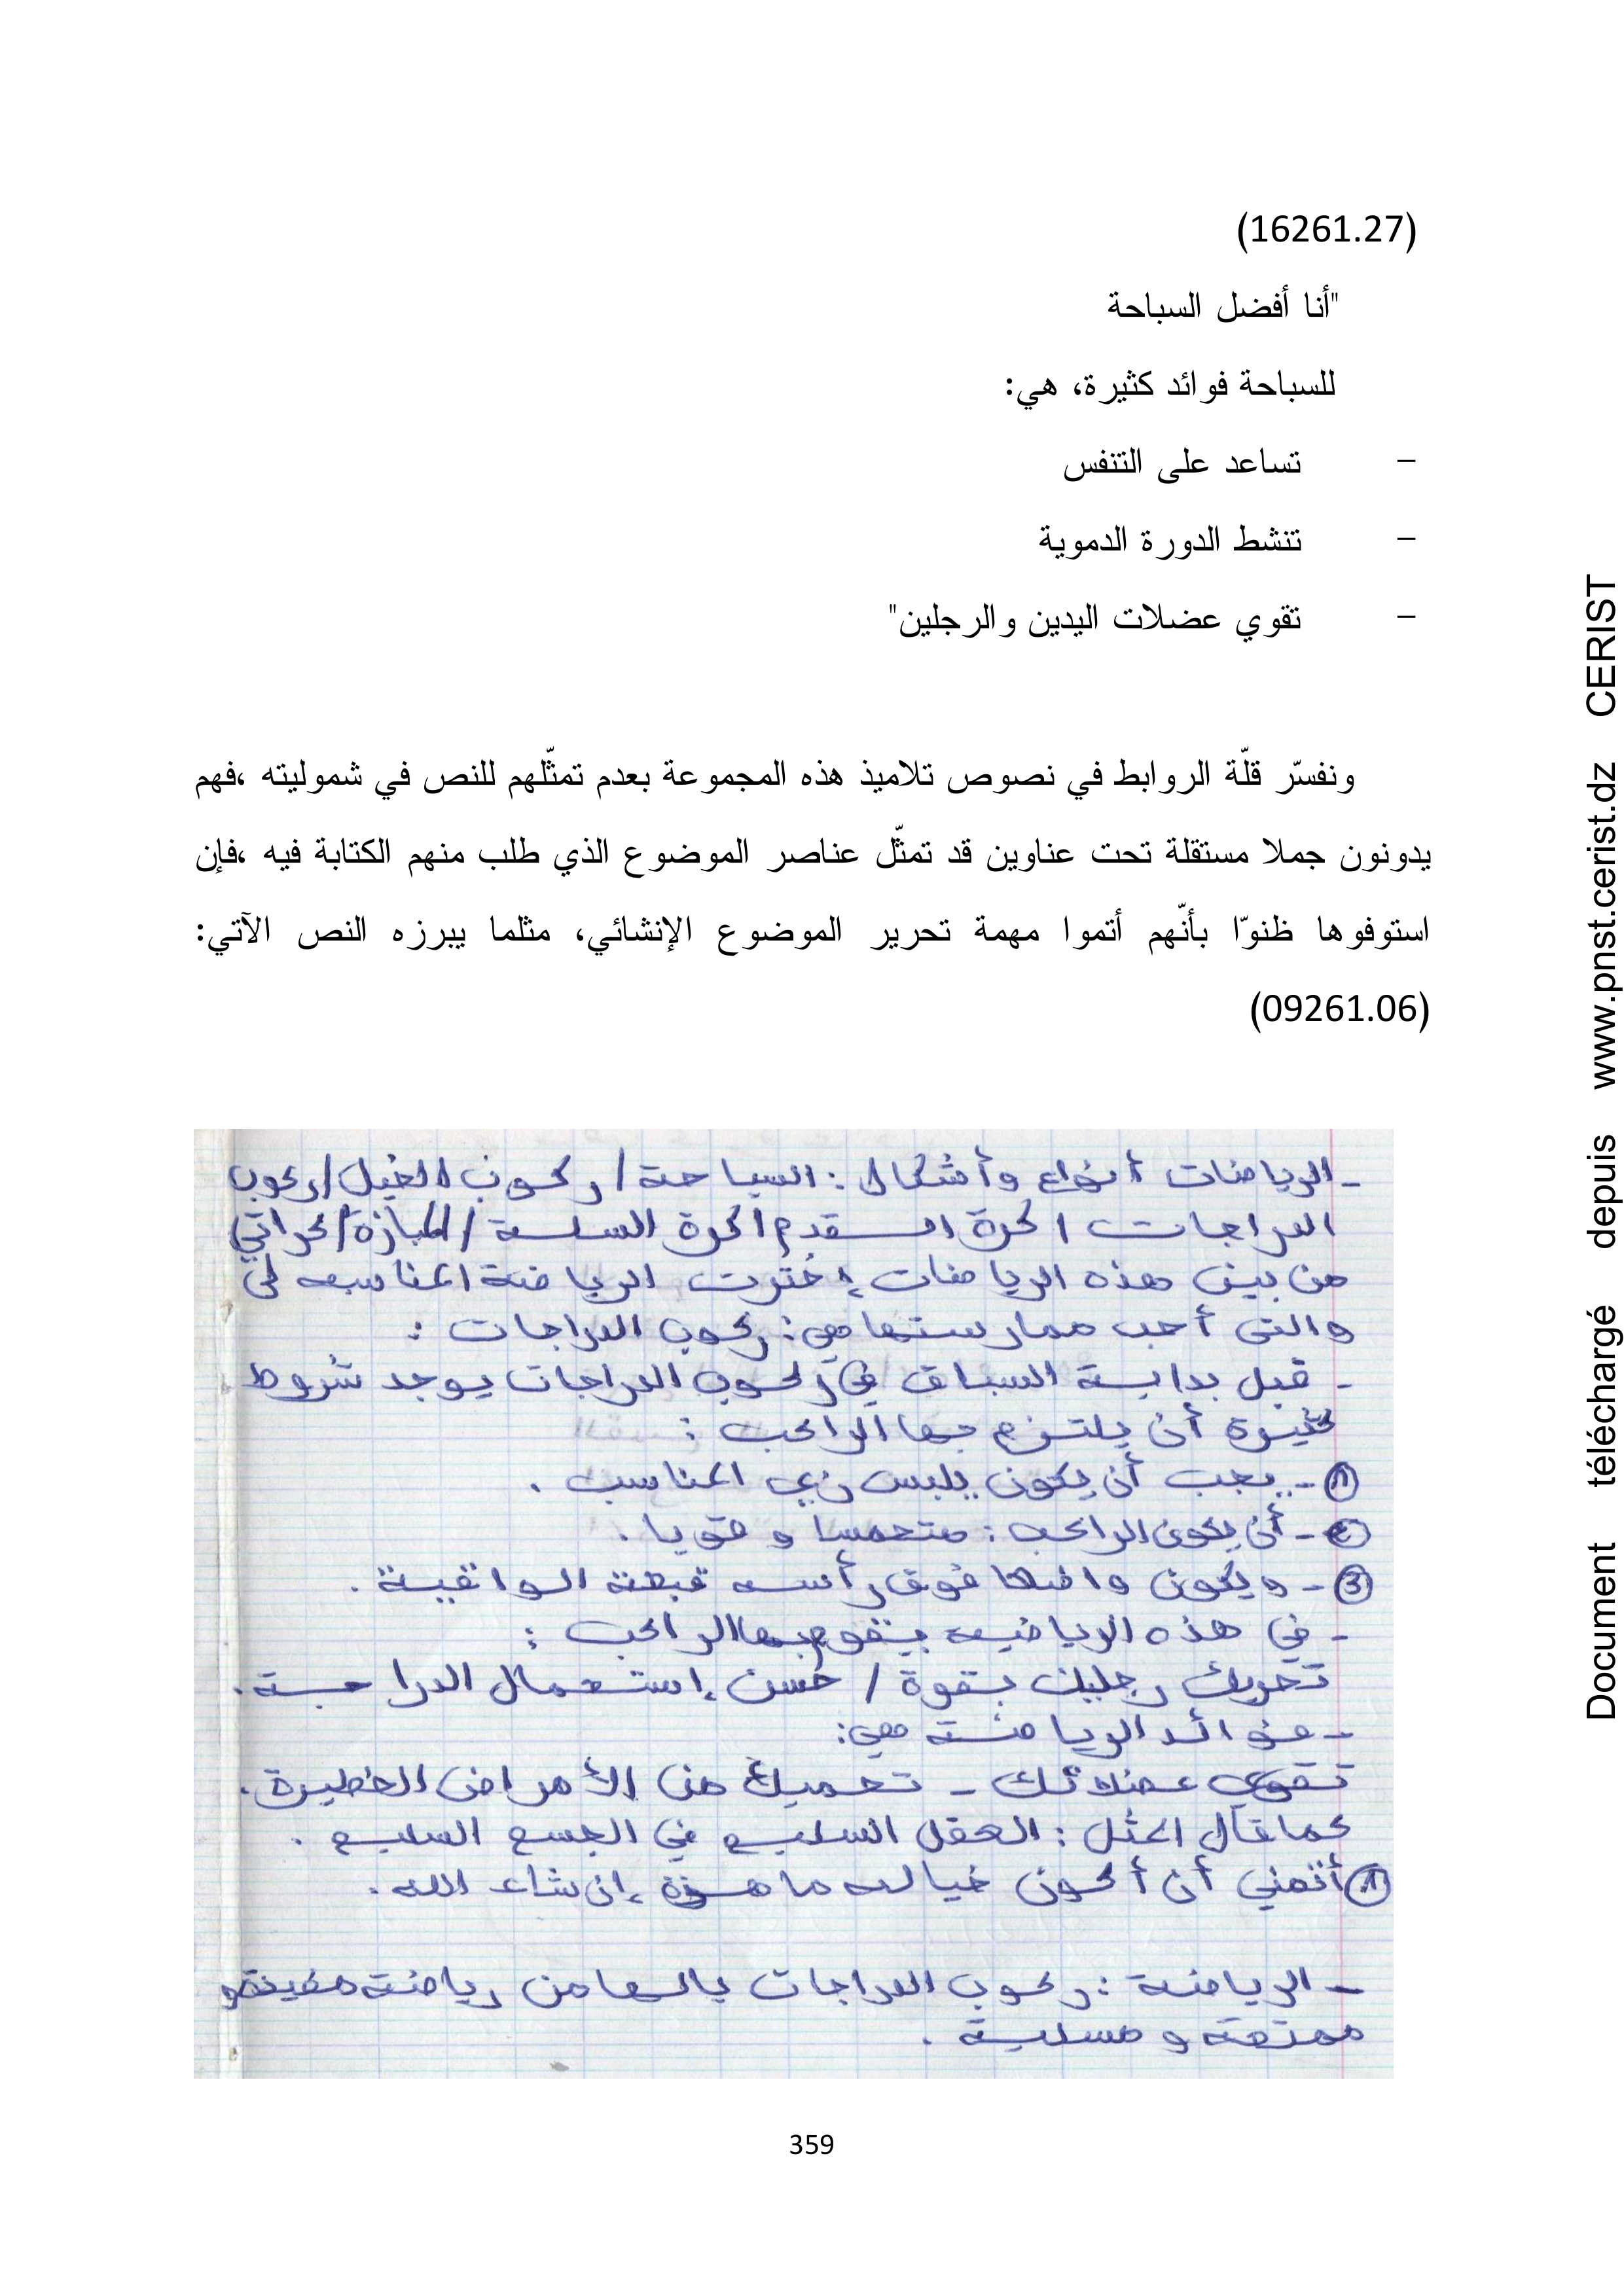 (16261.27)
"أنا أفضل السباحة
للسباحة فوائد كثيرة، هي:
- تساعد على التنفس
- تنشط الدورة الدموية
- تقوي عضلات اليدين والرجلين"
ونفسّر قلّة الروابط في نصوص تلاميذ هذه المجموعة بعدم تمثّلهم للنص في شموليته ،فهم
يدونون جملا مستقلة تحت عناوين قد تمثّل عناصر الموضوع الذي طلب منهم الكتابة فيه ،فإن
استوفوها ظنوّا بأنّهم أتموا مهمة تحرير الموضوع الإنشائي، مثلما يبرزه النص الآتي:
(09261.06)
- الرياضات أنواع وأشكال : السباحة / ركوب الخيل / ركوب
الدراجات / كرة القدم / كرة السلة / المبارزة / كراتي
من بين هذه الرياضات إخترت الرياضة المناسبه لي
والتي أحب ممارستها هي : ركوب الدراجات :
- قبل بداية السباق في ركوب الدراجات يوجد شروط
كثيرة أن يلتزم بها الراكب :
① - يجب أن يكون يلبس زي المناسب .
② - أن يكون الراكب : متحمسا و قويا .
③ - ويكون واضعا فوق رأسه قبعة الواقية .
- في هذه الرياضيه يقوم بها الراكب :
تحريك رجليك بقوة / حسن إستعمال الدراجة .
- فوائد الرياضة هي:
تقوي عضلاتك - تحميك من الأمراض الخطيرة .
كما قال المثل : العقل السليم في الجسم السليم .
أتمني أن أكون خياله ماهرة إن شاء الله .
- الرياضة : ركوب الدراجات يالها من رياضة مفيدة و
ممتعة و مسلية .
359
Document téléchargé depuis www.pnst.cerist.dz CERIST